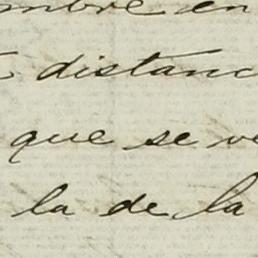 mbre en
distanc
que se ve
la de la